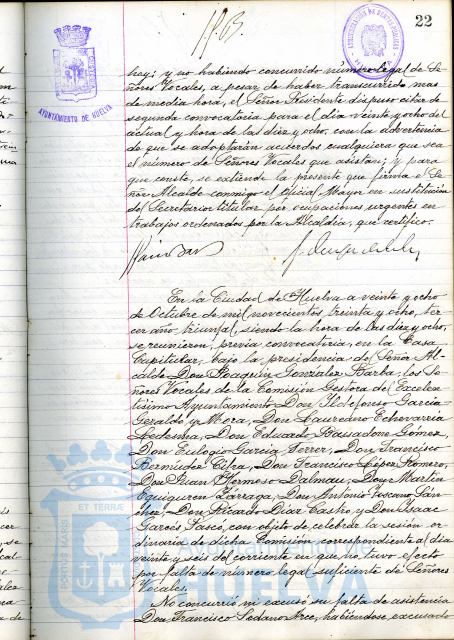 22
AYUNTAMIENTO DE HUELVA
hey; y no habiendo concurrido número legal de Se-
ñores Vocales, a pesar de haber transcurrido mas
de media hora, el Señor Presidente dispuso citar de
segunda convocatoria para el dia veinte y ocho del
actual y hora de las diez y ocho, con la advertencia
de que se adoptarán acuerdos cualquiera que sea
el número de Señores Vocales que asistan; y para
que conste, se extiende la presente que firma el Se-
ñor Alcalde conmigo el Oficial Mayor en sustitución
del Secretario titular por ocupaciones urgentes en
trabajos ordenados por la Alcaldía, que certifico.
En la Ciudad de Huelva a veinte y ocho
de Octubre de mil novecientos treinta y ocho, ter-
cer año triunfal, siendo la hora de las diez y ocho,
se reunieron, previa convocatoria, en la Casa
Capitular, bajo la presidencia del Señor Al-
calde Don Joaquin González Barba, los Se-
ñores Vocales de la Comisión Gestora del Excelen-
tisimo Ayuntamiento Don Ildefonso García
Geraldo y Mora, Don Laureano Echevarria
Ledesma, Don Eduardo Bassadone Gómez,
Don Eulogio García Ferrer, Don Francisco
Bermúdez Cifra, Don Francisco López Romero,
Don Juan Hermoso Dalmau, Don Martin
Eguiguren Zárraga, Don Antonio Toscano Sán-
chez, Don Ricardo Diaz Castro y Don Isaac
Garcés Tascó, con objeto de celebrar la sesión or-
dinaria de dicha Comisión, correspondiente al dia
veinte y seis del corriente en que no tuvo efecto
por falta de número legal suficiente de Señores
Vocales.
No concurrió ni excusó su falta de asistencia
Don Francisco Sedano Arce, habiéndose excusado
PORTUS MARIS ET TERRÆ
HUELVA